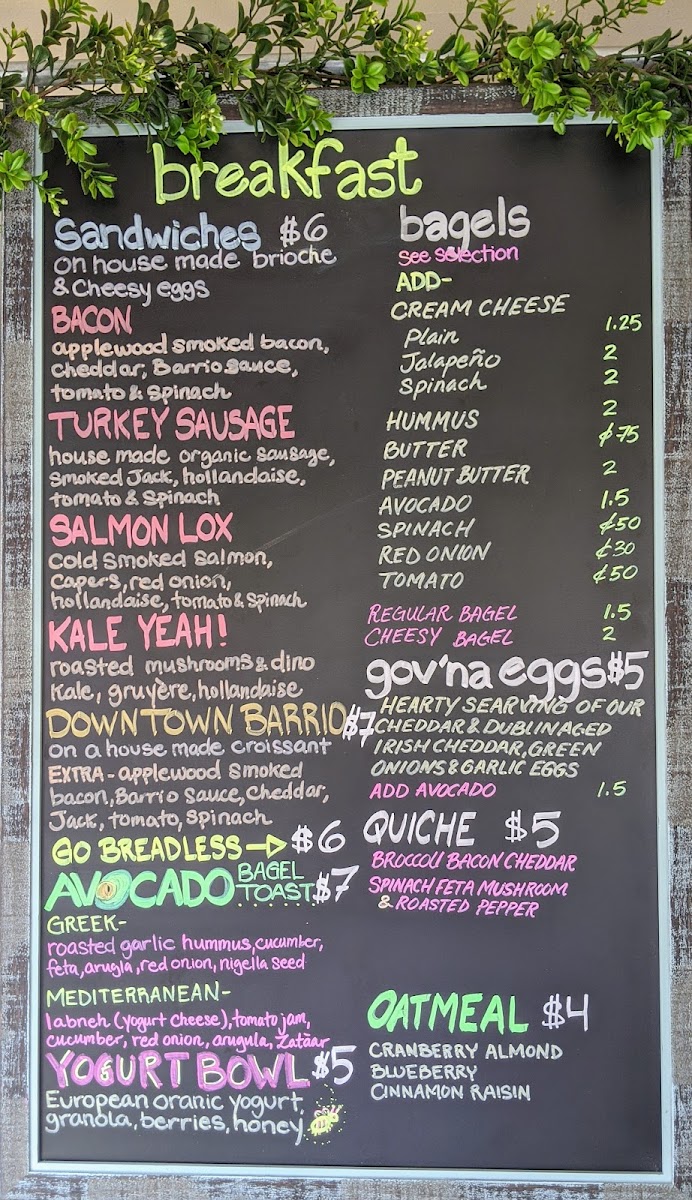 breakfast
Sandwiches $6
on house made brioche
& Cheesy eggs
BACON
applewood smoked bacon,
cheddar, Barrio sauce,
tomato & spinach
TURKEY SAUSAGE
house made organic sausage,
smoked Jack, hollandaise,
tomato & spinach
SALMON LOX
Cold smoked salmon,
capers, red onion,
hollandaise, tomato & spinach
KALE YEAH!
roasted mushrooms & dino
kale, gruyère, hollandaise
DOWNTOWN BARRIO $7
on a house made croissant
EXTRA - applewood smoked
bacon, Barrio Sauce, Cheddar,
Jack, tomato, spinach
GO BREADLESS → $6
AVOCADO BAGEL
TOAST $7
GREEK-
roasted garlic hummus, cucumber,
feta, arugla, red onion, nigella seed
MEDITERRANEAN-
labneh (yogurt cheese), tomato jam,
cucumber, red onion, arugula, Zataar
YOGURT BOWL $5
European oranic yogurt,
granola, berries, honey
bagels
see selection
ADD-
CREAM CHEESE
Plain 1.25
Jalapeño 2
Spinach 2
HUMMUS 2
BUTTER ¢75
PEANUT BUTTER 2
AVOCADO 1.5
SPINACH ¢50
RED ONION ¢30
TOMATO ¢50
REGULAR BAGEL 1.5
CHEESY BAGEL 2
gov'na eggs $5
HEARTY SEARVING OF OUR
CHEDDAR & DUBLIN AGED
IRISH CHEDDAR, GREEN
ONIONS & GARLIC EGGS
ADD AVOCADO 1.5
QUICHE $5
BROCCOLI BACON CHEDDAR
SPINACH FETA MUSHROOM
& ROASTED PEPPER
OATMEAL $4
CRANBERRY ALMOND
BLUEBERRY
CINNAMON RAISIN